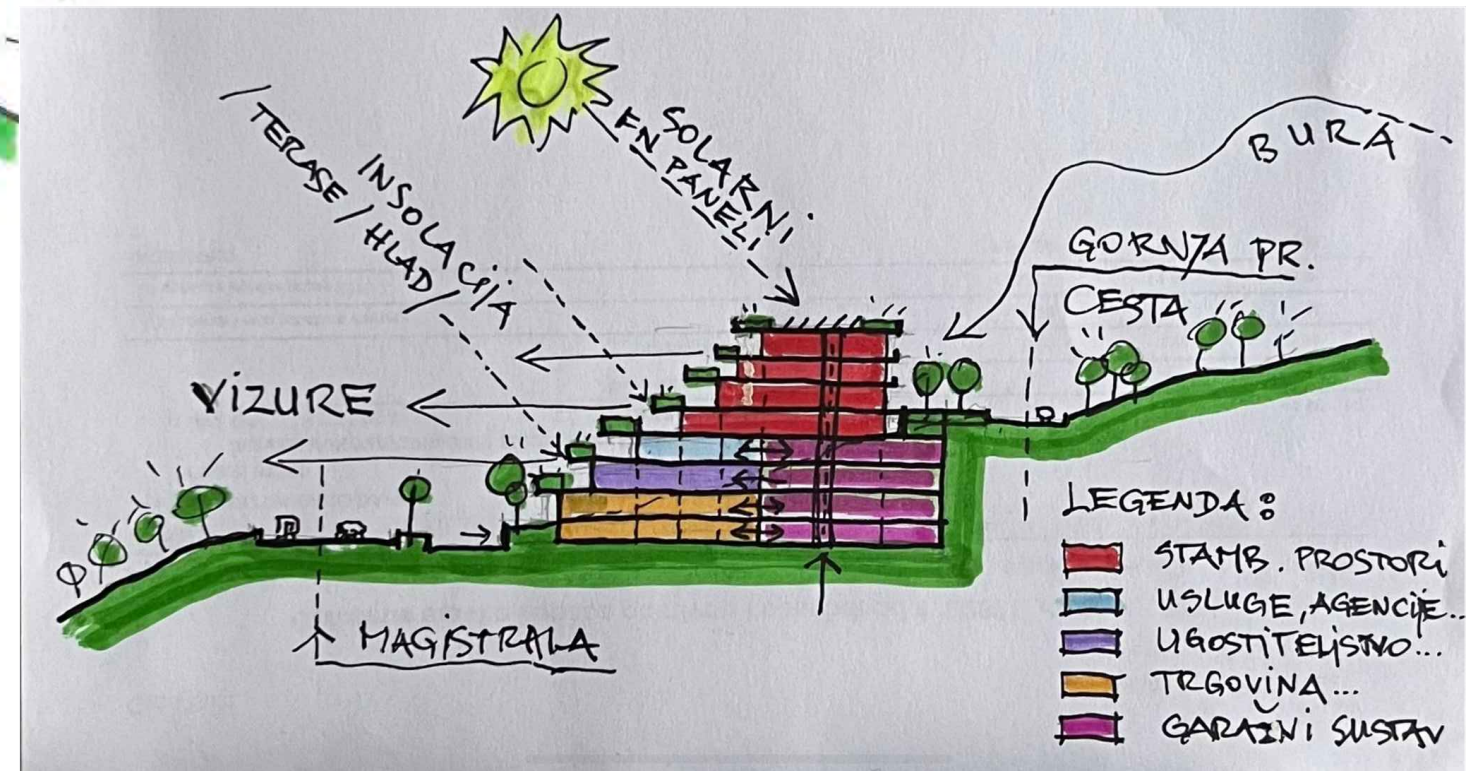 SOLARNI
FN PANELI
INSOLACIJA
TERASE / HLAD /
BURA
GORNJA PR.
CESTA
VIZURE
MAGISTRALA
LEGENDA:
STAMB. PROSTORI
USLUGE, AGENCIJE...
UGOSTITELJSTVO...
TRGOVINA...
GARAŽNI SUSTAV